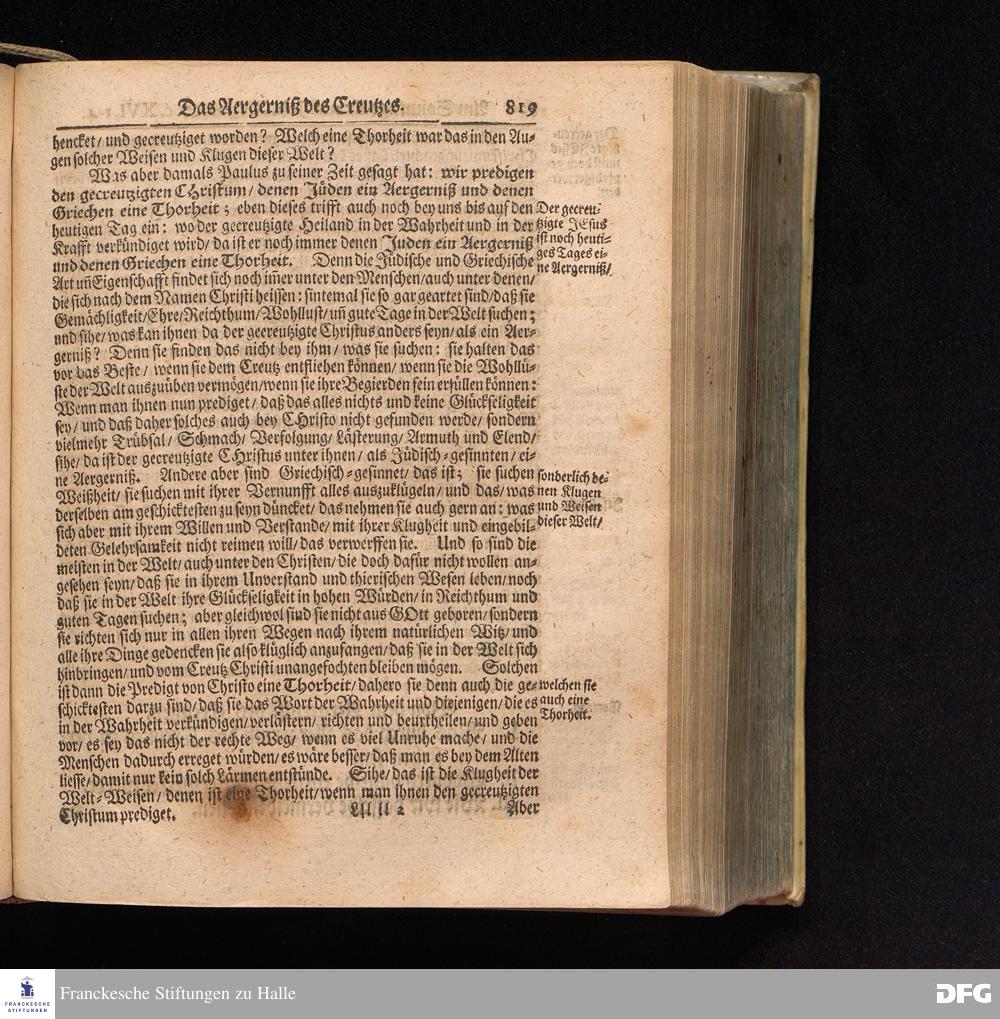 Das Aergerniß des Creutzes. 819
hencket/ und gecreutziget worden? Welch eine Thorheit war das in den Au-
gen solcher Weisen und Klugen dieser Welt?
Was aber damals Paulus zu seiner Zeit gesagt hat: wir predigen
den gecreutzigten CHristum/ denen Jüden ein Aergerniß und denen
Griechen eine Thorheit; eben dieses trifft auch noch bey uns bis auf den
heutigen Tag ein: wo der gecreutzigte Heiland in der Wahrheit und in der
Krafft verkündiget wird/ da ist er noch immer denen Juden ein Aergerniß
und denen Griechen eine Thorheit. Denn die Jüdische und Griechische
Art uñ Eigenschafft findet sich noch im̃er unter den Menschen/ auch unter denen/
die sich nach dem Namen Christi heissen: sintemal sie so gar geartet sind/ daß sie
Gemächligkeit/ Ehre/ Reichthum/ Wohllust/ uñ gute Tage in der Welt suchen;
und sihe/ was kan ihnen da der gecreutzigte Christus anders seyn/ als ein Aer-
gerniß? Denn sie finden das nicht bey ihm/ was sie suchen: sie halten das
vor das Beste/ wenn sie dem Creutz entfliehen können/ wenn sie die Wohllü-
ste der Welt auszuüben vermögen/ wenn sie ihre Begierden fein erfüllen können:
Wenn man ihnen nun prediget/ daß das alles nichts und keine Glückseligkeit
sey/ und daß daher solches auch bey CHristo nicht gefunden werde/ sondern
vielmehr Trübsal/ Schmach/ Verfolgung/ Lästerung/ Armuth und Elend/
sihe/ da ist der gecreutzigte CHristus unter ihnen/ als Jüdisch-gesinnten/ ei-
ne Aergerniß. Andere aber sind Griechisch-gesinnet/ das ist; sie suchen
Weißheit/ sie suchen mit ihrer Vernunfft alles auszuklügeln/ und das/ was
derselben am geschicktesten zu seyn düncket/ das nehmen sie auch gern an: was
sich aber mit ihrem Willen und Verstande/ mit ihrer Klugheit und eingebil-
deten Gelehrsamkeit nicht reimen will/ das verwerffen sie. Und so sind die
meisten in der Welt/ auch unter den Christen/ die doch dafür nicht wollen an-
gesehen seyn/ daß sie in ihrem Unverstand und thierischen Wesen leben/ noch
daß sie in der Welt ihre Glückseligkeit in hohen Würden/ in Reichthum und
guten Tagen suchen; aber gleichwol sind sie nicht aus GOtt geboren/ sondern
sie richten sich nur in allen ihren Wegen nach ihrem natürlichen Witz/ und
alle ihre Dinge gedencken sie also klüglich anzufangen/ daß sie in der Welt sich
hinbringen/ und vom Creutz Christi unangefochten bleiben mögen. Solchen
ist dann die Predigt von Christo eine Thorheit/ dahero sie denn auch die ge-
schicktesten darzu sind/ daß sie das Wort der Wahrheit und diejenigen/ die es
in der Wahrheit verkündigen/ verlästern/ richten und beurtheilen/ und geben
vor/ es sey das nicht der rechte Weg/ wenn es viel Unruhe mache/ und die
Menschen dadurch erreget würden/ es wäre besser/ daß man es bey dem Alten
liesse/ damit nur kein solch Lärmen entstünde. Sihe/ das ist die Klugheit der
Welt-Weisen/ denen ist eine Thorheit/ wenn man ihnen den gecreutzigten
Christum prediget. Lll ll 2 Aber
Der gecreu-
tzigte JEsus
ist noch heuti-
ges Tages ei-
ne Aergerniß/
sonderlich de-
nen Klugen
und Weisen
dieser Welt/
welchen sie
auch eine
Thorheit.
FRANCKESCHE
STIFTUNGEN
Franckesche Stiftungen zu Halle
DFG